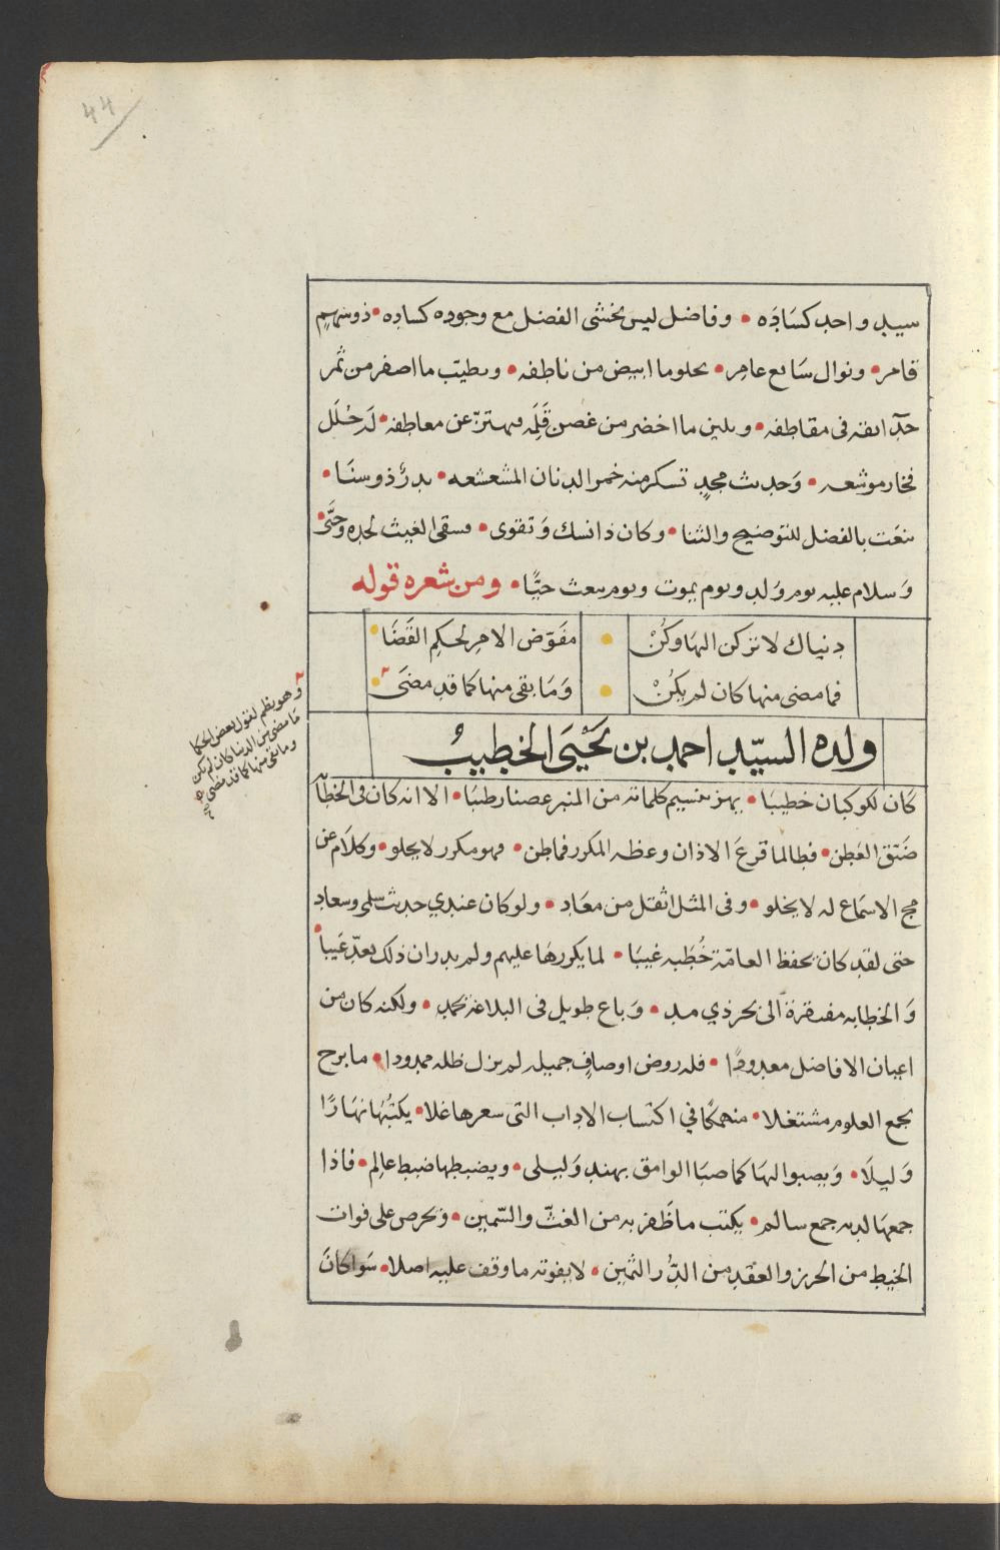 ٤٤
سيد واحد كسَادَه • وفاضل ليس يخشى الفضل مع وجوده كساده • ذو سهم
قامر • ونوال سَابع عامر • يحلو ما ابيض من ناطفه • ويطيب ما اصفر من ثمر
حدآئقه فى مقاطفه • ويلين ما اخضر من غصن قَلَمِه فيهتزّ عن معاطفه • لَه حُلَل
فخار موشعه • وَحديث مجدٍ تسكر منه خمر الدنان المشعشعه • بدرٌ ذو سنَا •
ينعَت بالفضل للتوضيح والثنا • وكان ذا نسك وَتقوى • فسقى الغيث لحده وحَيَّى
وَسلام عليه يوم وُلد ويوم يموت ويوم يبعث حيًّا • ومن شعره قوله
دنياك لا تركن اليهَا وكُنْ • مفَوّض الامر لحكم القَضَا
فما مضى منها كان لم يكُنْ • وَمَا بقى منها كما قد مضَى
وهو ينظم لقول بعض الحكما
مَا مضى من الدنيا كان لم يكن
وما بقى منها كما قد مضى
ولده السيّد احمد بن يَحْيَى الخطيبُ
كَان لكوكبان خطيبَا • يهز بنسيم كلماته من المنبر غصنا رطبَا • الا انه كان فى الخطآ
ضَيّق العَطن • فطالما قرعَ الاذان وعظه المكرر فما طن • فهو مكرر لا يحلو • وكلاَم عن
مج الاسمَاع له لا يخلو • وفى المثل اثقل من معَاد • ولو كان عندي حديث سلمى وسعاد
حتى لقد كان يحفظ العامّة خُطَبه غيبَا • لما يكررهَا عليهم ولم يدر ان ذلك يعدّ عَيبا
وَالخطابه مفتقرة الى بحر ذي مد • وَباع طويل فى البلاغة يمد • ولكنه كان من
اعيان الافاضل معدودًا • فله روض اوصاف جميله لم يزل ظله ممدودا • ما برح
بجمع العلوم مشتغلا • منهمكًا في اكتساب الاداب التى سعرها غلا • يكتُبُهَا نهَارًا
وَليلَا • وَيصبوا اليهَا كما صبَا الوامق بهند وَليلى • ويضبطها ضبط عالِم • فاذا
جمعهَا لديه جمع سالم • يكتب ما ظَفر به من الغثّ والسّمين • ويحرص على فوات
الخيط من الخرز والعقد من الدُّر الثمين • لا يفوته ما وقف عليه اصلا • سَوا كانَ